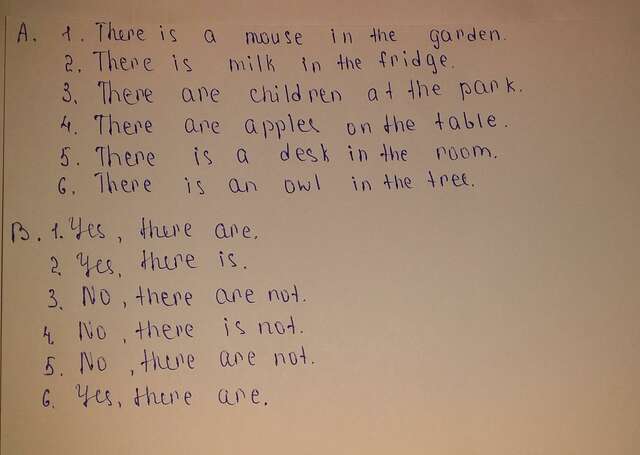 A. 1. There is a mouse in the garden.
2. There is milk in the fridge.
3. There are children at the park.
4. There are apples on the table.
5. There is a desk in the room.
6. There is an owl in the tree.
B. 1. Yes, there are.
2. Yes, there is.
3. No, there are not.
4. No, there is not.
5. No, there are not.
6. Yes, there are.